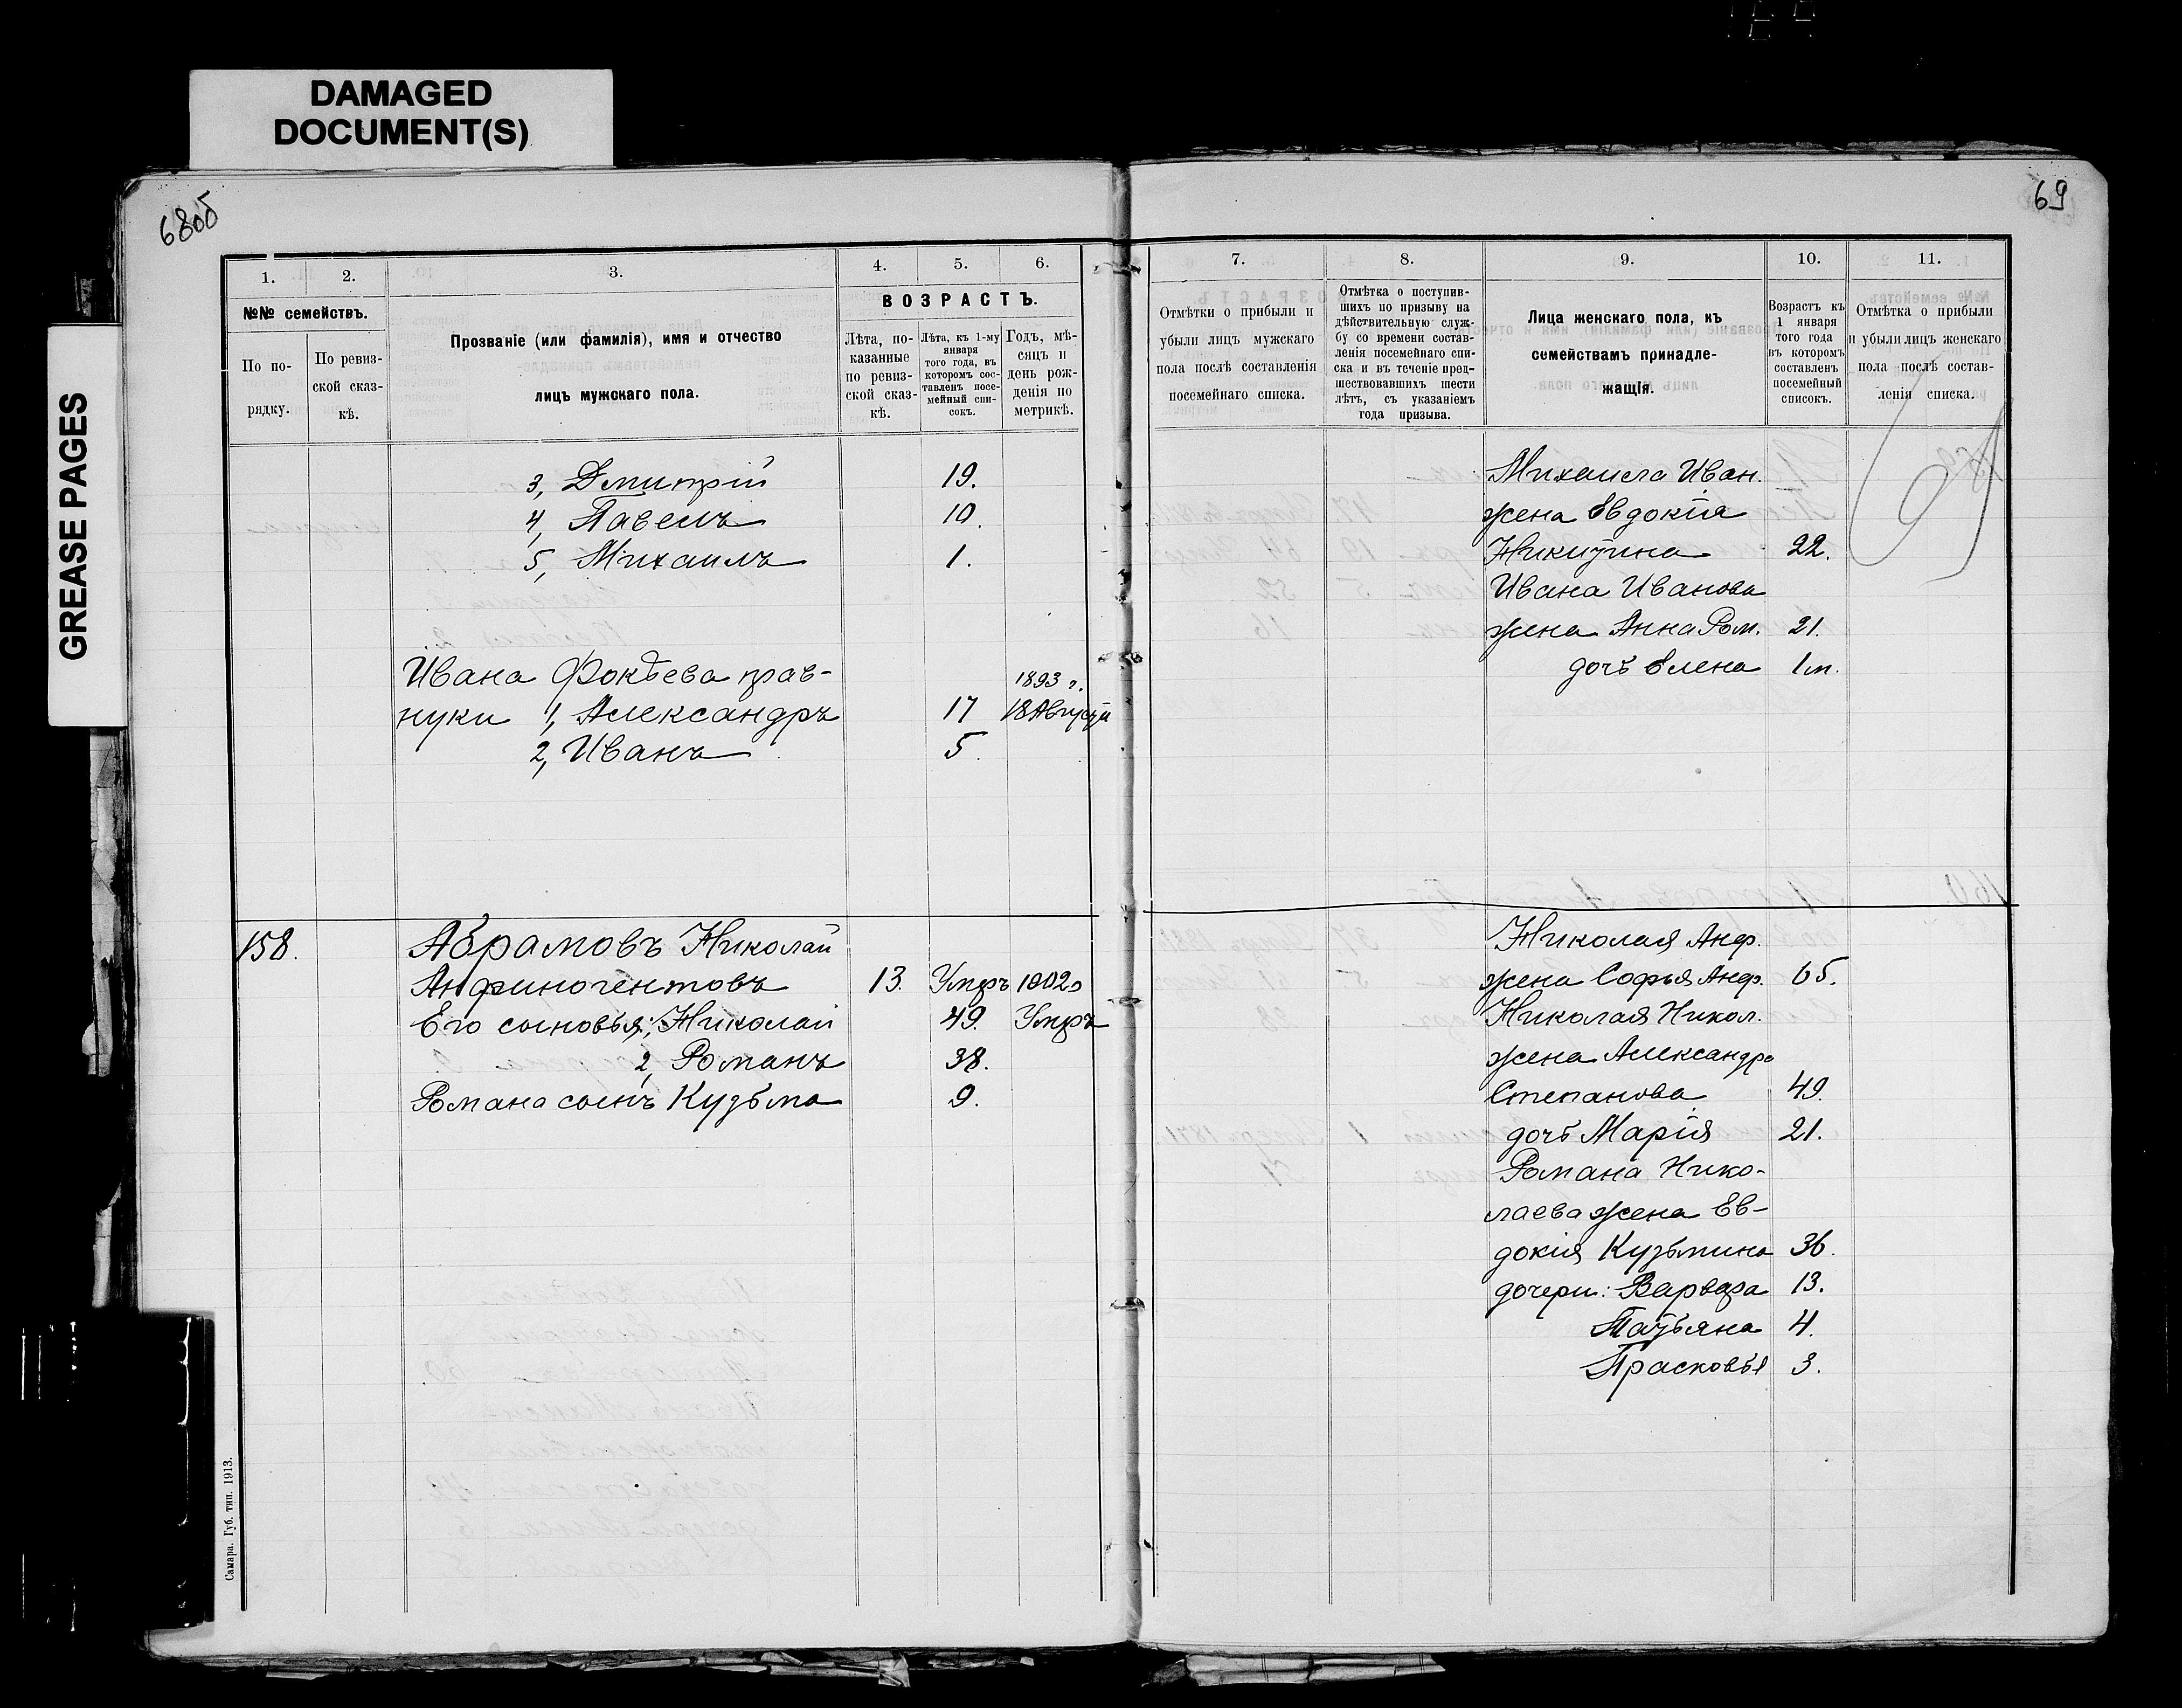 DAMAGED
DOCUMENT(S)
GREASE PAGES
68об
69
1.
2.
3.
4.
5.
6.
№№ семействъ.
По по-
рядку.
По ревиз-
ской сказ-
кѣ.
Прозваніе (или фамилія), имя и отчество
лицъ мужскаго пола.
ВОЗРАСТЪ.
Лѣта, по-
казанные
по ревиз-
ской сказ-
кѣ.
Лѣта, къ 1-му
января
того года, въ
которомъ сос-
тавленъ посе-
мейный спи-
сокъ.
Годъ, мѣ-
сяцъ и
день рож-
денія по
метрикѣ.
3, Дмитрій 19.
4, Павелъ 10.
5, Михаилъ 1.
Ивана Фоктѣева прав- 1893 г.
нуки 1, Александръ 17 18 Августа
2, Иванъ 5.
158. Абрамовъ Николай
Анфиногентовъ 13. Умеръ 1902 г
Его сыновья: 1, Николай 49. Умеръ
2, Романъ 38.
Романа сынъ Кузьма 9.
Самара. Губ. тип. 1913.
7.
8.
9.
10.
11.
Отмѣтки о прибыли и
убыли лицъ мужскаго
пола послѣ составленія
посемейнаго списка.
Отмѣтка о поступив-
шихъ по призыву на
дѣйствительную служ-
бу со времени состав-
ленія посемейнаго спи-
ска и въ теченіе пред-
шествовавшихъ шести
лѣтъ, съ указаніемъ
года призыва.
Лица женскаго пола, къ
семействамъ принадле-
жащія.
Возрастъ къ
1 января
того года
въ которомъ
составленъ
посемейный
списокъ.
Отмѣтка о прибыли
и убыли лицъ женскаго
пола послѣ состав-
ленія списка.
Михаила Иван.
жена Евдокія
Никитина 22.
Ивана Иванова
жена Анна Ром. 21.
дочь Елена 1 м.
Николая Анф.
жена Софья Анф. 65.
Николая Никол.
жена Александра
Степанова 49.
дочь Марія 21.
Романа Нико-
лаева жена Ев-
докія Кузьмина 36.
дочери: Варвара 13.
Татьяна 4.
Прасковья 3.